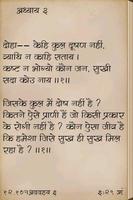 अध्याय ३
दोहा-- केहि कुल दूषण नहीं,
व्याधि न काहि सताय।
कष्ट न भोग्यो कौन जन, सुखी
सदा कोउ नाय॥१॥
जिसके कुल में दोष नहीं है ?
कितने ऐसे प्राणी हैं जो किसी प्रकार
के रोगी नहीं है ? कौन ऐसा जीव है
कि हमेशा जिसे सुख ही सुख मिल
रहा है ? ॥१॥